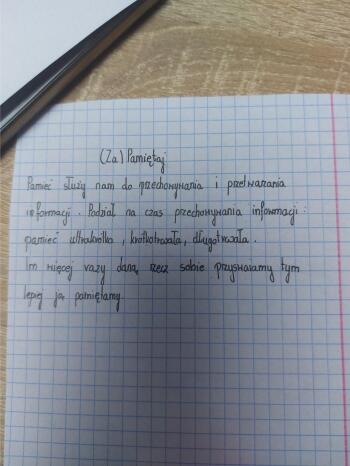 (Za) Pamiętaj
Pamięć służy nam do przechowywania i przetwarzania
informacji. Podział na czas przechowywania informacji:
pamięć ultrakrótka, krótkotrwała, długotrwała.
Im więcej razy daną rzecz sobie przyswajamy tym
lepiej ją pamiętamy.